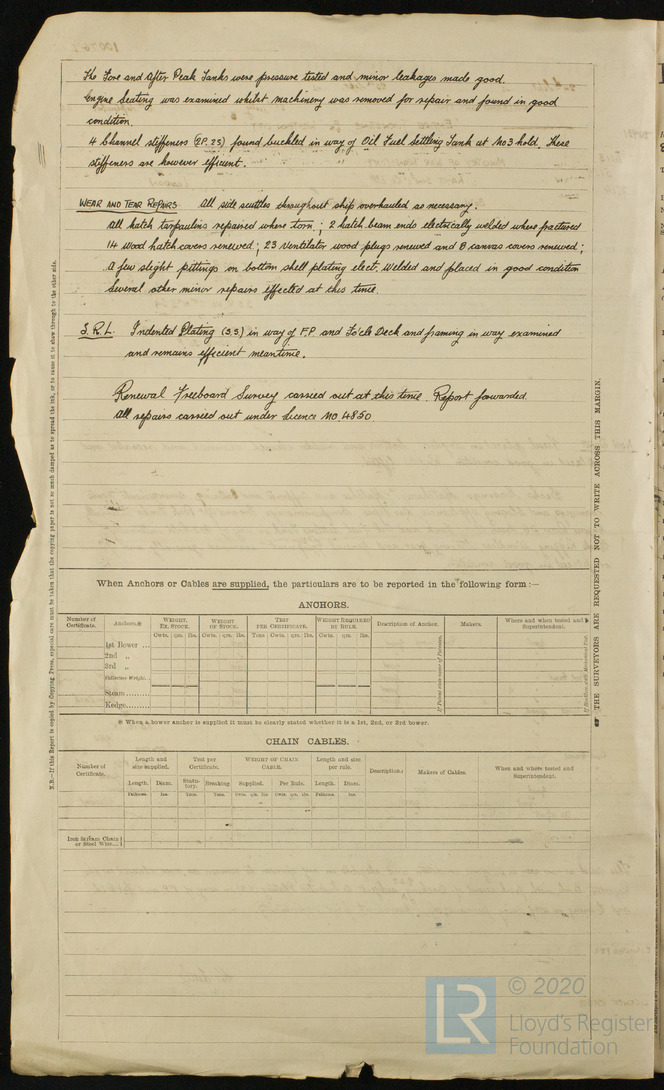 The Fore and After Peak Tanks were pressure tested and minor leakages made good.
Engine Seating was examined whilst machinery was removed for repair and found in good
condition.
4 Channel stiffeners (2P. 2S) found buckled in way of Oil Fuel Settling Tank at No3 hold. These
stiffeners are however efficient.
WEAR AND TEAR REPAIRS All side scuttles throughout ship overhauled as necessary.
All hatch tarpaulins repaired where torn; 2 hatch beam ends electrically welded where fractured
14 wood hatch covers renewed; 23 ventilator wood plugs renewed and 8 canvas covers renewed;
A few slight pittings on bottom shell plating elect. welded and placed in good condition
Several other minor repairs effected at this time.
S.R.L. Indented Plating (S.S) in way of F.P. and Fo'cle Deck and framing in way examined
and remains efficient meantime.
Renewal Freeboard Survey carried out at this time. Report forwarded.
All repairs carried out under Licence No. 4850
N.B.—If this Report is copied by Copying Press, especial care must be taken that the copying paper is not so much damped as to spread the ink, or to cause it to show through to the other side.
THE SURVEYORS ARE REQUESTED NOT TO WRITE ACROSS THIS MARGIN.
When Anchors or Cables are supplied, the particulars are to be reported in the following form:—
ANCHORS.
Number of Certificate.
Anchors.*
WEIGHT, EX. STOCK.
WEIGHT OF STOCK.
TEST PER CERTIFICATE.
WEIGHT REQUIRED BY RULE.
Description of Anchor.
Makers.
Where and when tested and Superintendent.
Cwts. qrs. lbs.
Cwts. qrs. lbs.
Tons Cwts. qrs. lbs.
Cwts. qrs. lbs.
1st Bower ...
2nd „
3rd „
Collective Weight.
Stream
Kedge
* When a bower anchor is supplied it must be clearly stated whether it is a 1st, 2nd, or 3rd bower.
CHAIN CABLES.
Number of Certificate.
Length and size supplied.
Test per Certificate.
WEIGHT OF CHAIN CABLE.
Length and size per rule.
Description.
Makers of Cables.
When and where tested and Superintendent.
Length. Diam.
Statutory. Breaking.
Supplied. Per Rule.
Length. Diam.
Fathoms. Ins. Tons. Tons. Cwts. qrs. lbs Cwts. qrs. lbs. Fathoms. Ins.
Iron Stream Chain
or Steel Wire...
LR
© 2020
Lloyd's Register
Foundation